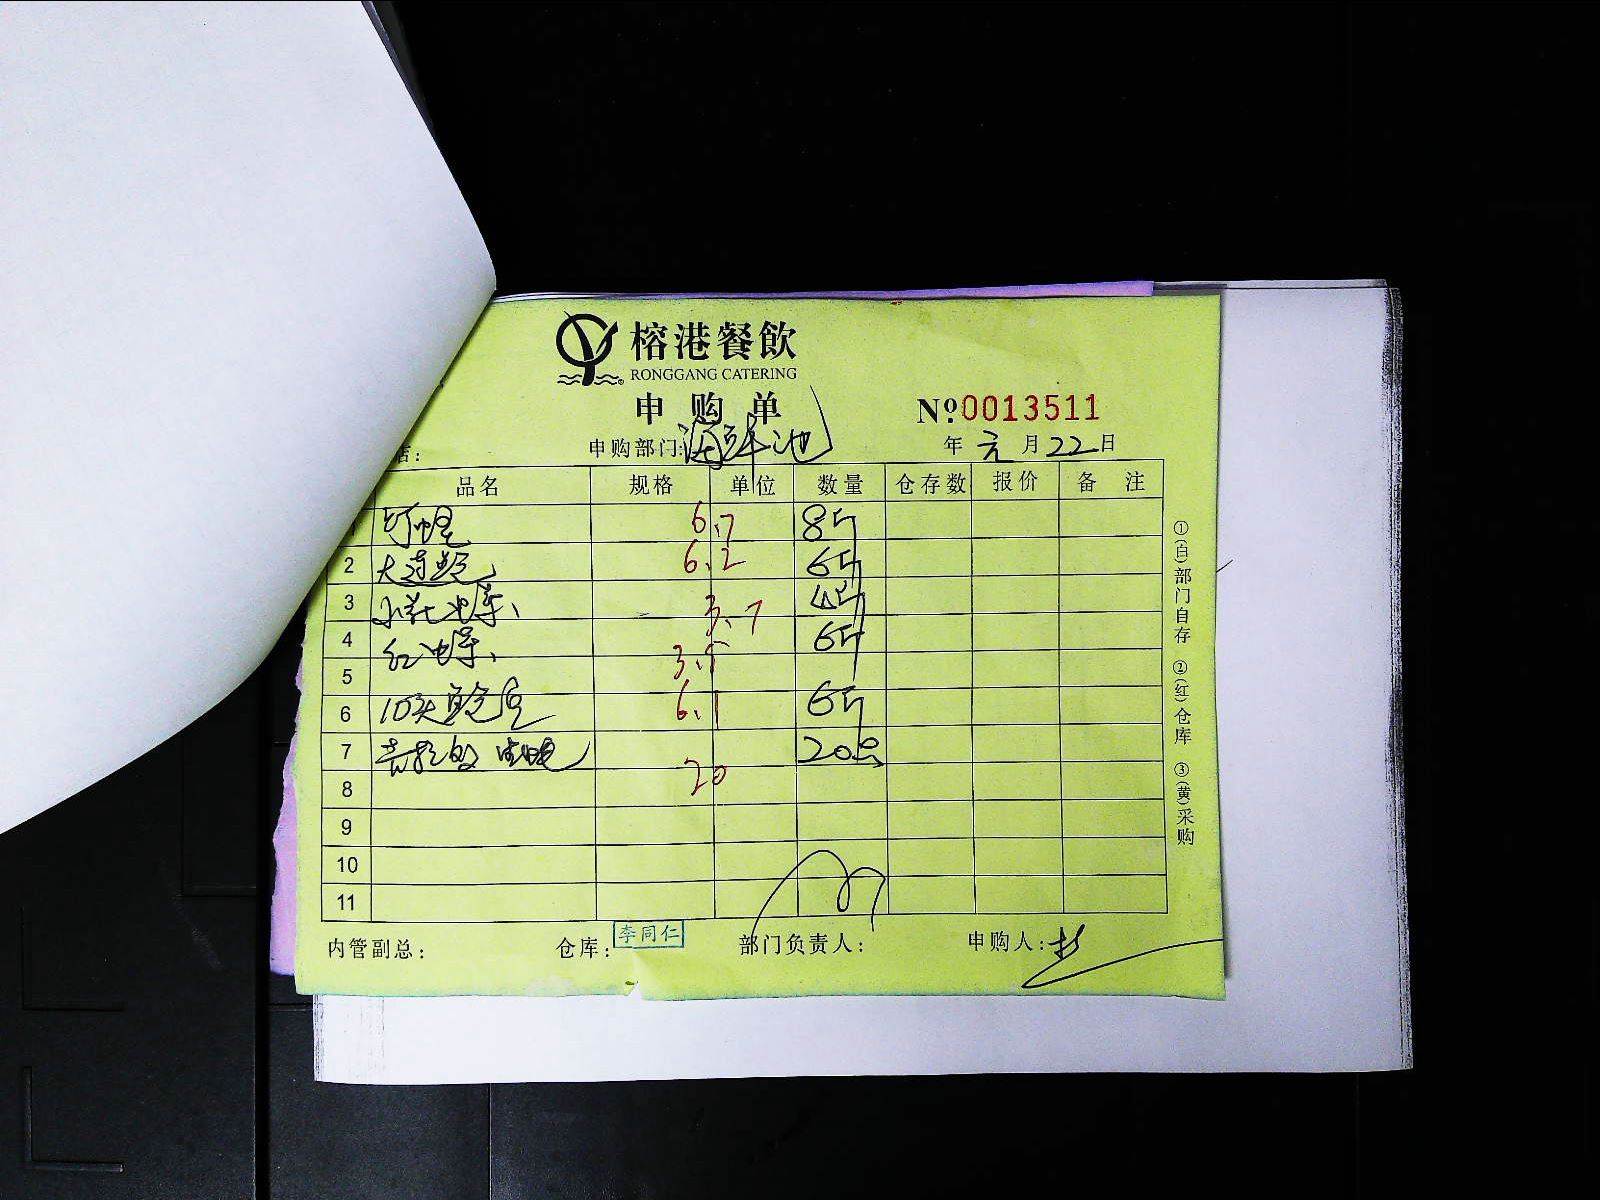 榕港餐飲
RONGGANG CATERING
申购单
№0013511
店：
申购部门：海鲜池
年 元 月 22 日
品名 规格 单位 数量 仓存数 报价 备注
6.7 8斤
2 大连鲍 6.2 6斤
3 小花 3.7 4斤
4 红 3.5 6斤
5
6 10头鲍 6.1 6斤
7 20 20只
8
9
10
11
内管副总：
仓库：李同仁
部门负责人：
申购人：
①(白)部门自存 ②(红)仓库 ③(黄)采购